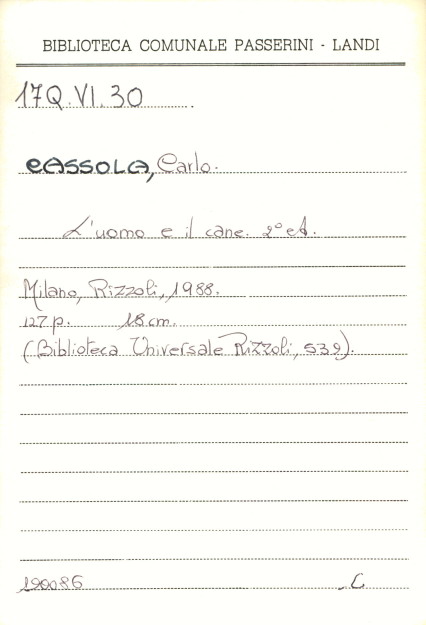 BIBLIOTECA COMUNALE PASSERINI - LANDI
17Q.VI.30
CASSOLA, Carlo.
L'uomo e il cane. 2° ed.
Milano, Rizzoli, 1988.
127 p. 18 cm.
(Biblioteca Universale Rizzoli, 539).
190086 C